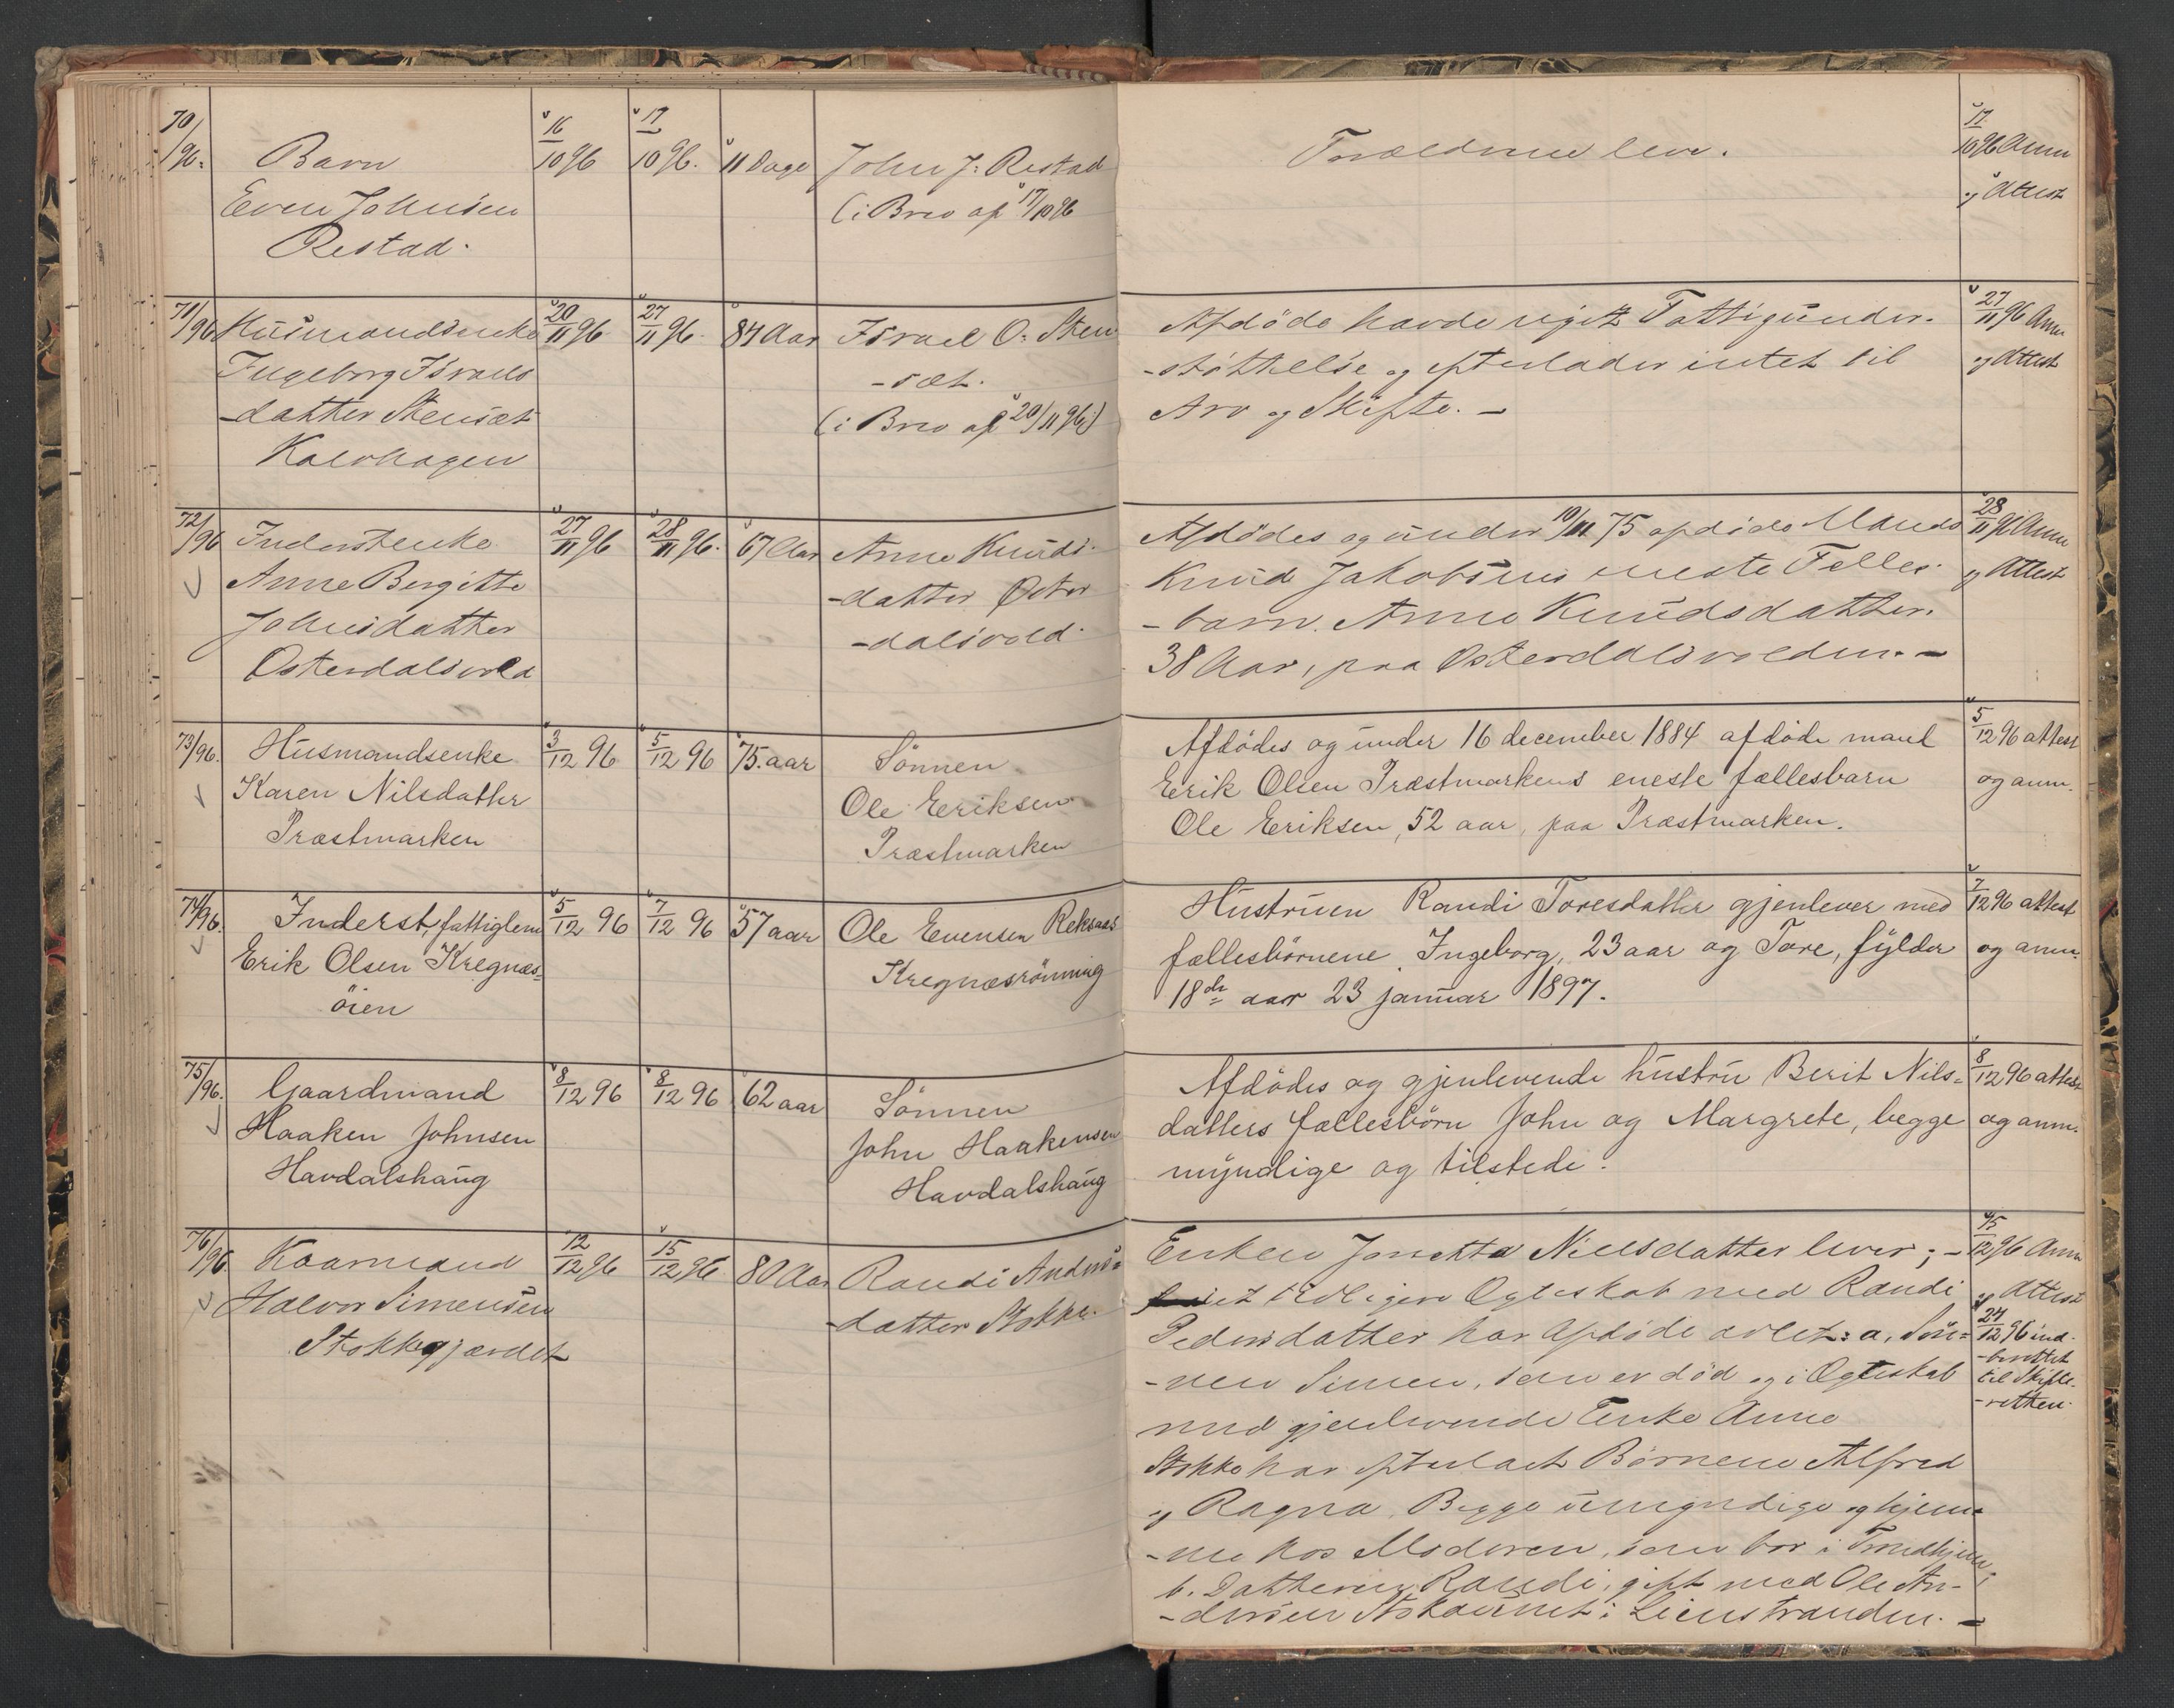 70/96.
Barn
Even Johnsen
Restad.
16/10 96
17/10 96.
11 Dage
John J: Restad
(i Brev af 17/10 96
Forældrene lever.
17/10 96 Anm
og Attest
71/96
Husmandsenke
Ingeborg Israels
-datter Stensæt
Kalvhagen
20/11 96
27/11 96.
84 Aar
Israel O: Sten
-sæt.
(i Brev af 20/11 96)
Afdøde havde nydt Fattigunder-
-støttelse og efterlader intet til
Arv og Skifte. -
27/11 96 Anm
og Attest
72/96
Inderstenke
Anne Bergitte
Johnsdatter
Østerdalsvold
27/11 96
28/11 96.
67 Aar
Anne Knuds-
-datter Øster
-dalsvold.
Afdødes og under 10/11 75 afdøde Mands
Knud Jakobsens eneste Felles-
-barn. Anne Knudsdatter.
38 Aar, paa Østerdalsvolden. -
28/11 96 Anm
og Attest
73/96.
Husmandsenke
Karen Nilsdatter
Præstmarken
3/12 96
5/12 96
75. aar
Sönnen
Ole Eriksen
Præstmarken
Afdödes og under 16 december 1884 afdöde mand
Erik Olsen Præstmarkens eneste fællesbarn
Ole Eriksen, 52 aar, paa Præstmarken.
5/12 96 attest
og anm.
74/96.
Inderst, fattiglem
Erik Olsen Kregnæs-
öien
5/12 96
7/12 96
57 aar
Ole Evensen Reksaas
Kregnæsrönning
Hustruen Randi Toresdatter gjenlever med
fællesbörnene Ingeborg, 23 aar og Tore, fylder
18de aar 23 januar 1897.
7/12 96 attest
og anm.
75/96.
Gaardmand
Haaken Johnsen
Havdalshaug
8/12 96
8/12 96
62 aar
Sönnen
John Haakensen
Havdalshaug
Afdödes og gjenlevende hustru Berit Nils-
datters fællesbörn John og Margrete, begge
myndige og tilstede.
8/12 96 attest
og anm.
76/96.
Kaarmand
Halvor Simensen
Stokkegjærdet
12/12 96
15/12 96
80 Aar
Randi Anders-
-datter Stokke.
Enken Jonetta Nielsdatter lever; -
iet tidligere Ægteskab med Randi
Pedersdatter har Afdøde avlet: a, Søn-
-nen Simen, som er død og i Ægteskab
med gjenlevende Enke Anne
Stokke har efterladt Børnene Alfred
og Ragna, Begge umyndige og hjem-
-me hos Moderen, som bor i Trondhjem;
b. Datteren Randi, gift med Ole An-
-dersen i Leinstranden. -
15/12 96 Anm
og Attest
24/12 96 ind-
-berettet
til Skifte-
-retten.